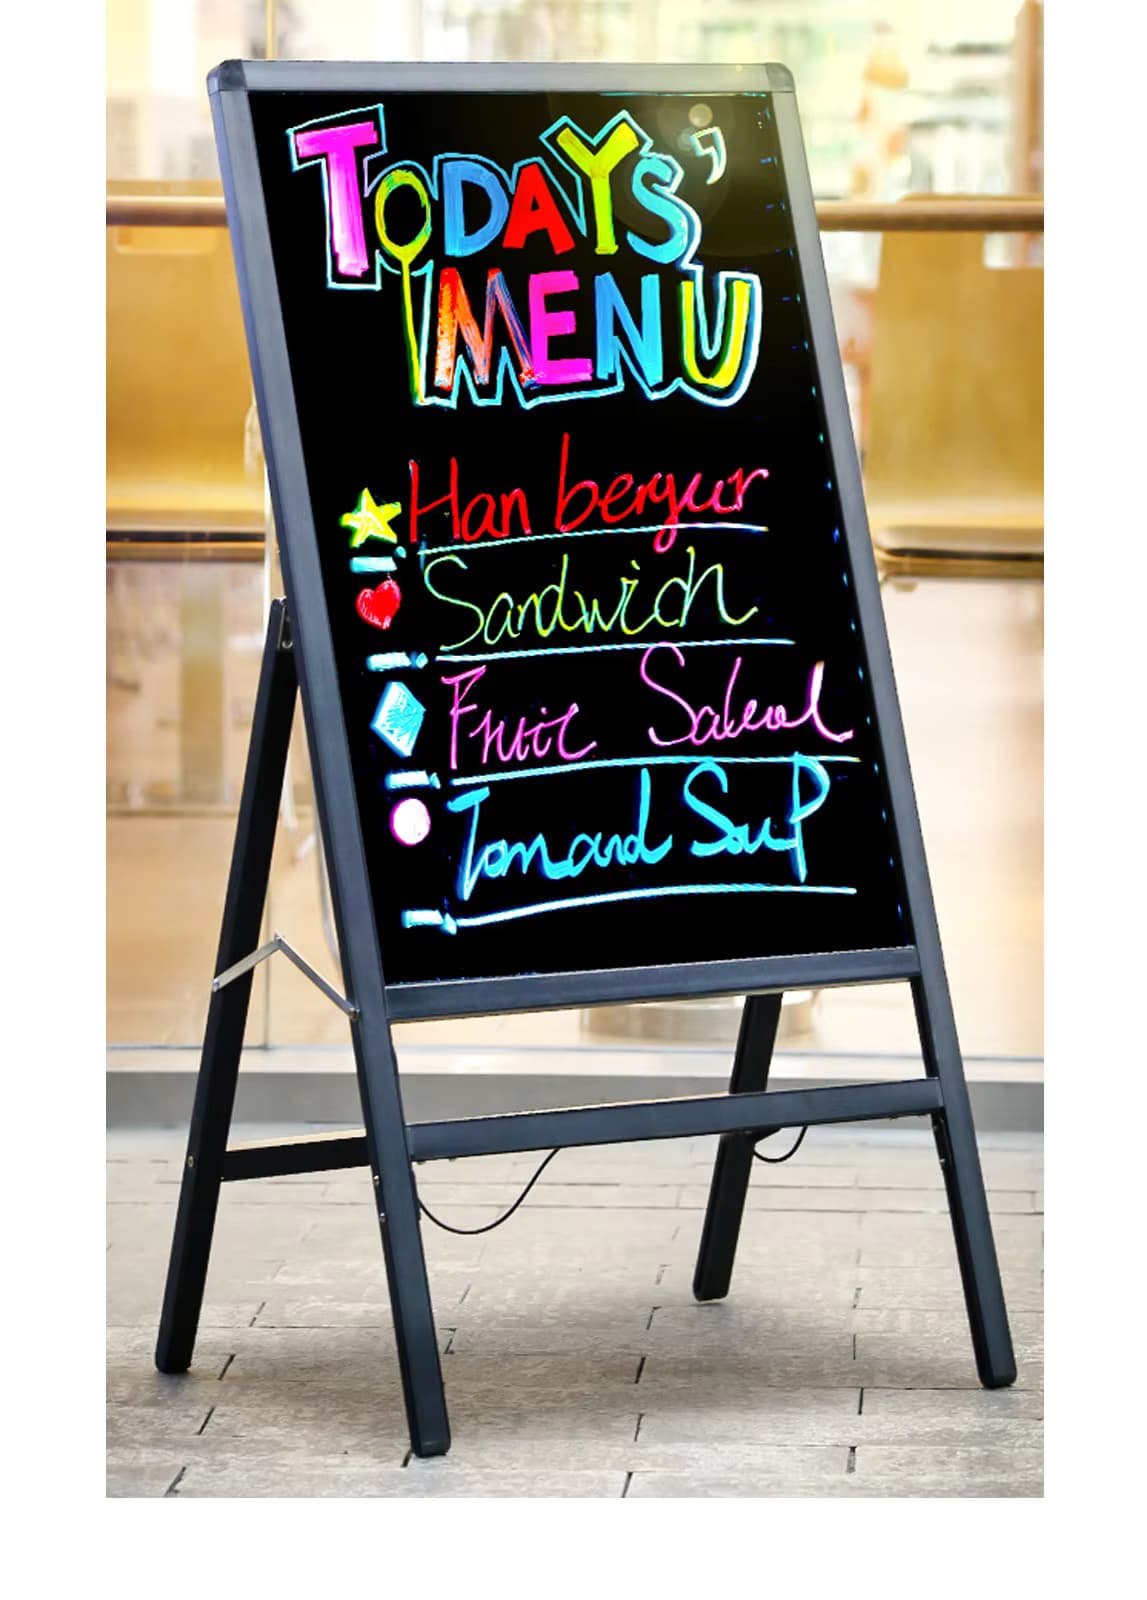 TODAYS'
MENU
Han bergur
Sandwich
Fruit Salad
Tomand Soup